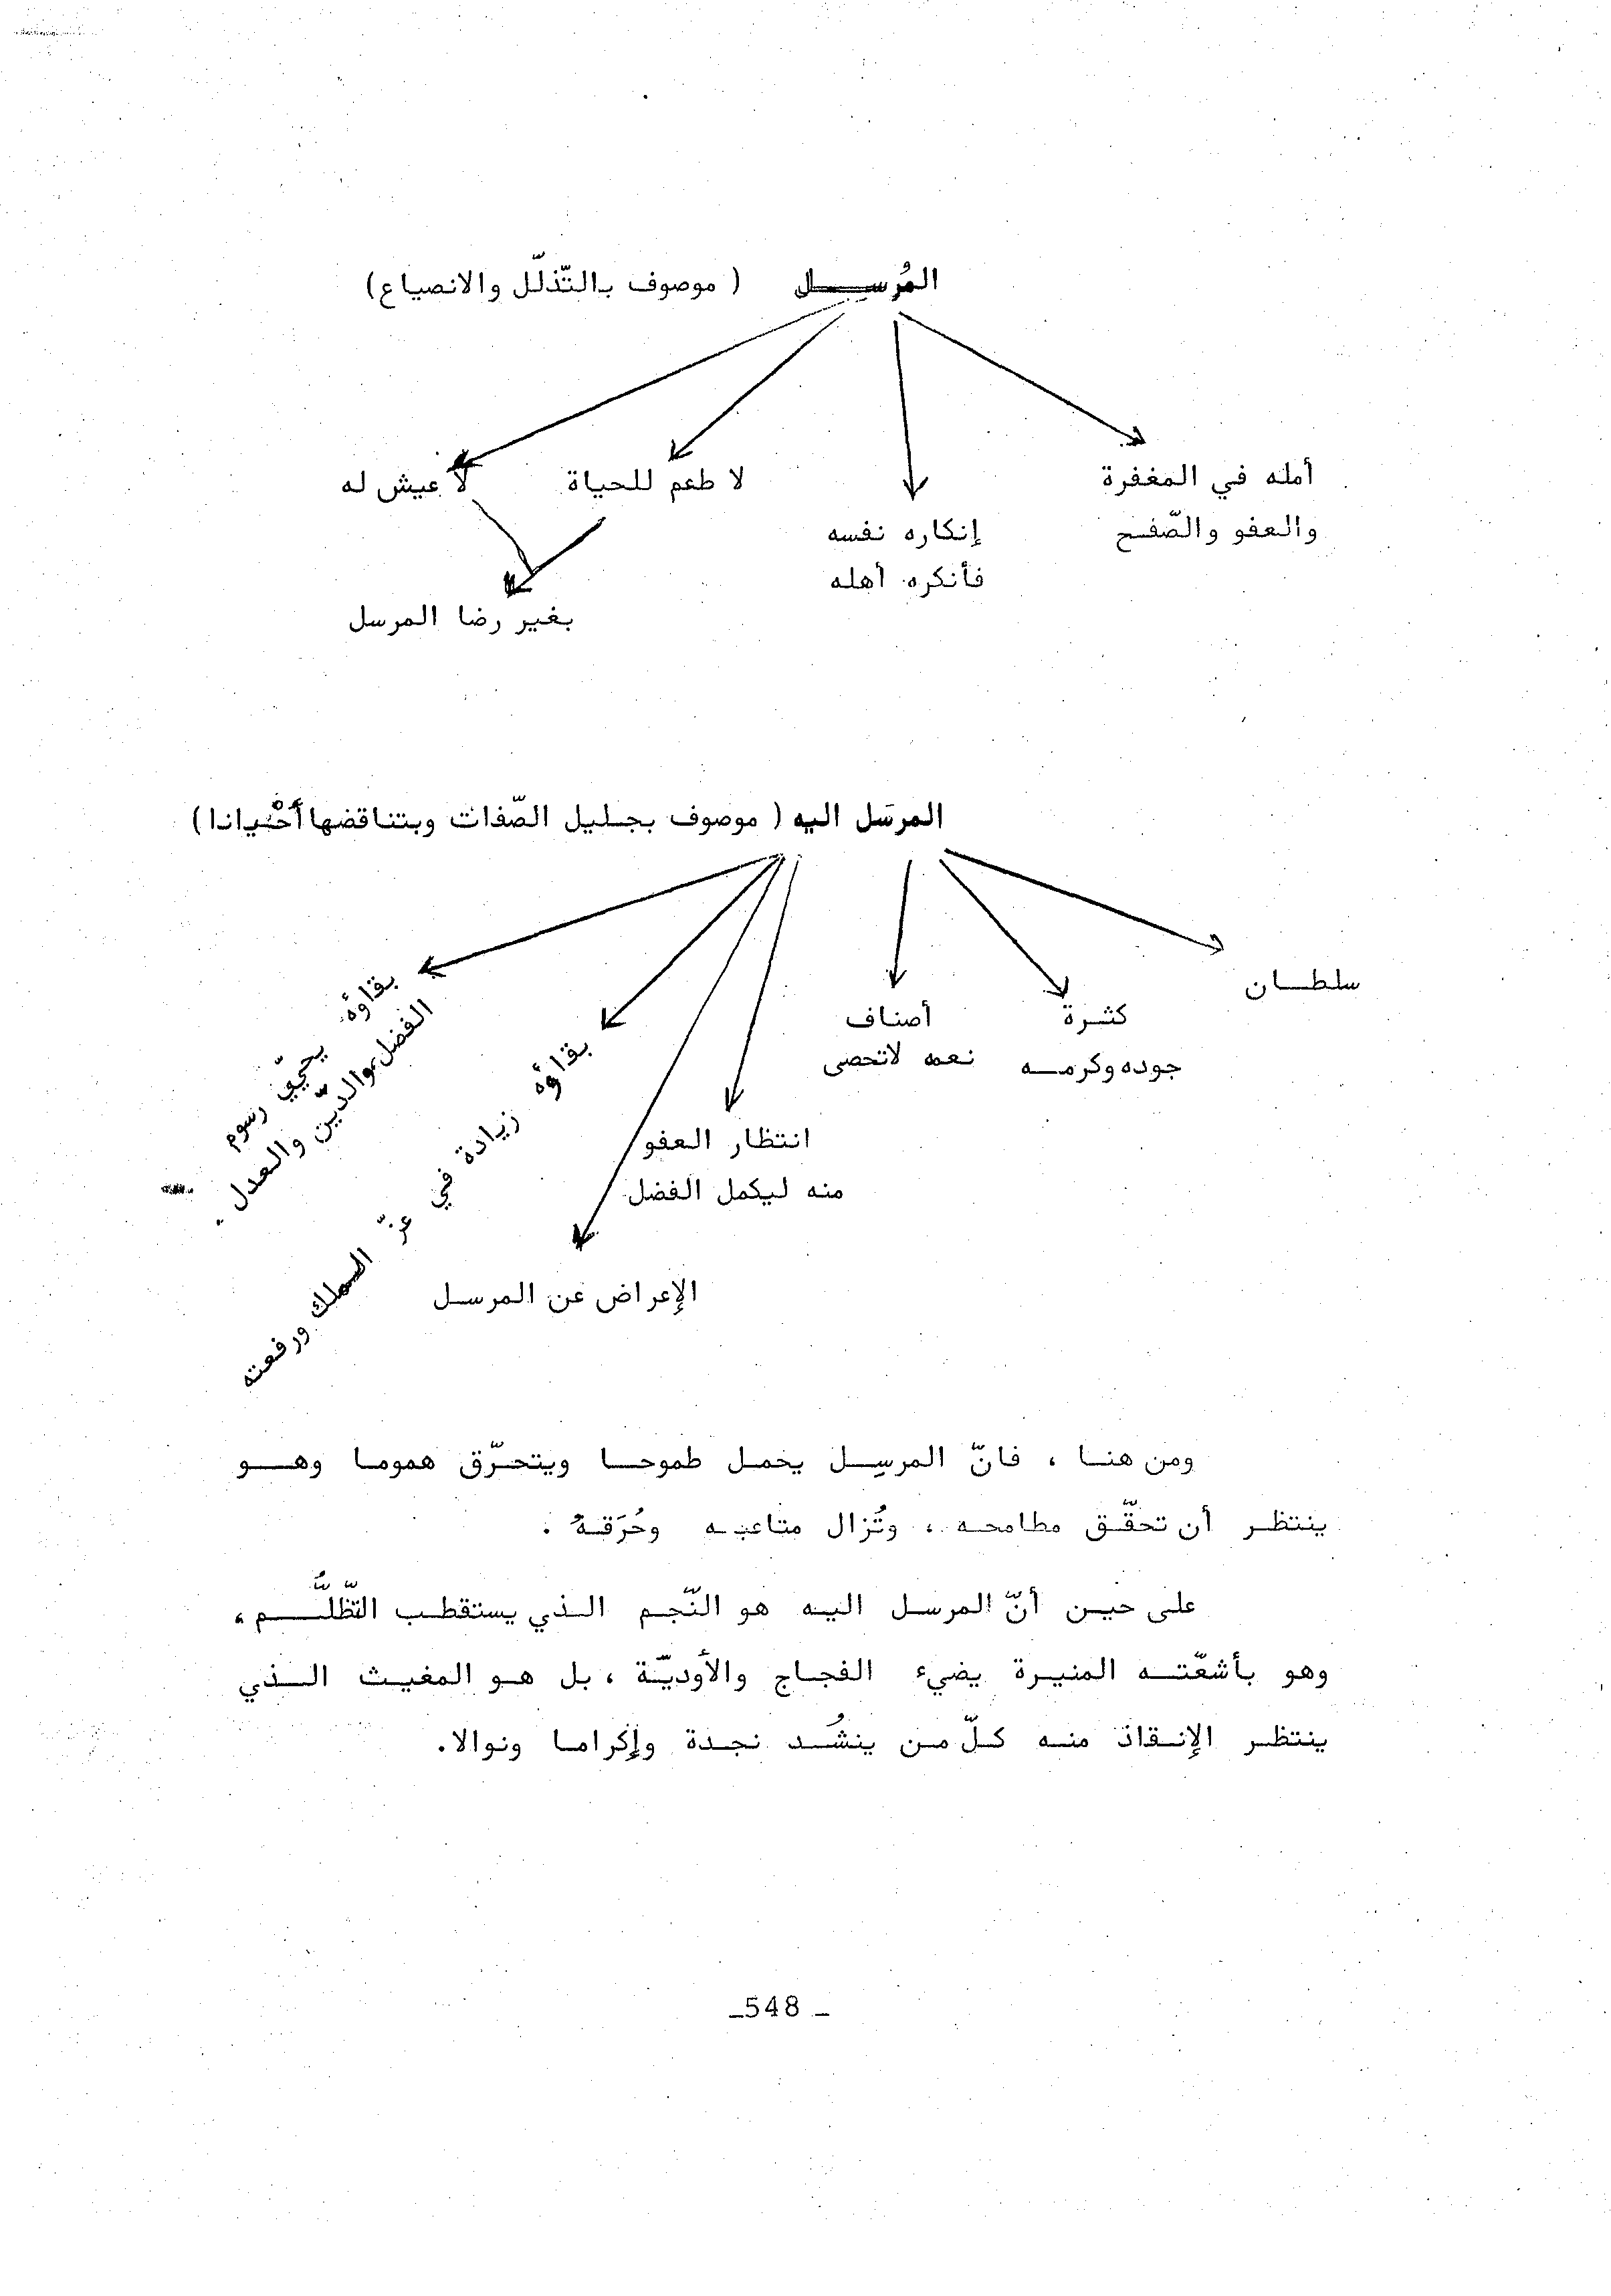 المُرسِـل ( موصوف بالتّذلّل والانصياع)
أمله في المغفرة
والعفو والصّفح
إنكاره نفسه
فأنكره أهله
لا طعم للحياة
لا عيش له
بغير رضا المرسل
المرسَل اليه ( موصوف بجليل الصّفات وبتناقضها أحْيانا)
سلطـان
كثـرة
جوده وكرمـه
أصناف
نعمه لاتحصى
انتظار العفو
منه ليكمل الفضل
الإعراض عن المرسـل
بقاؤه زيادة في عزّ الـملك ورفعته
بقاؤه يحيي رسوم
الفضل والدّين والعدل .
ومن هنـا ، فانّ المرسِـل يحمل طموحـا ويتحـرّق همومـا وهــو
ينتظـر أن تحقّـق مطامحـه ، وتُزال متاعبـه وحُرَقـهُ .
على حيـن أنّ المرسـل اليـه هو النّجـم الـذي يستقطـب التّظلُّـم ،
وهو بأشعّتـه المنيـرة يضيء الفجـاج والأوديّـة ، بل هـو المغيـث الـذي
ينتظـر الإنـقـاذ منـه كـلّ مـن ينشُـد نجـدة وإكرامـا ونوالا.
_548 _